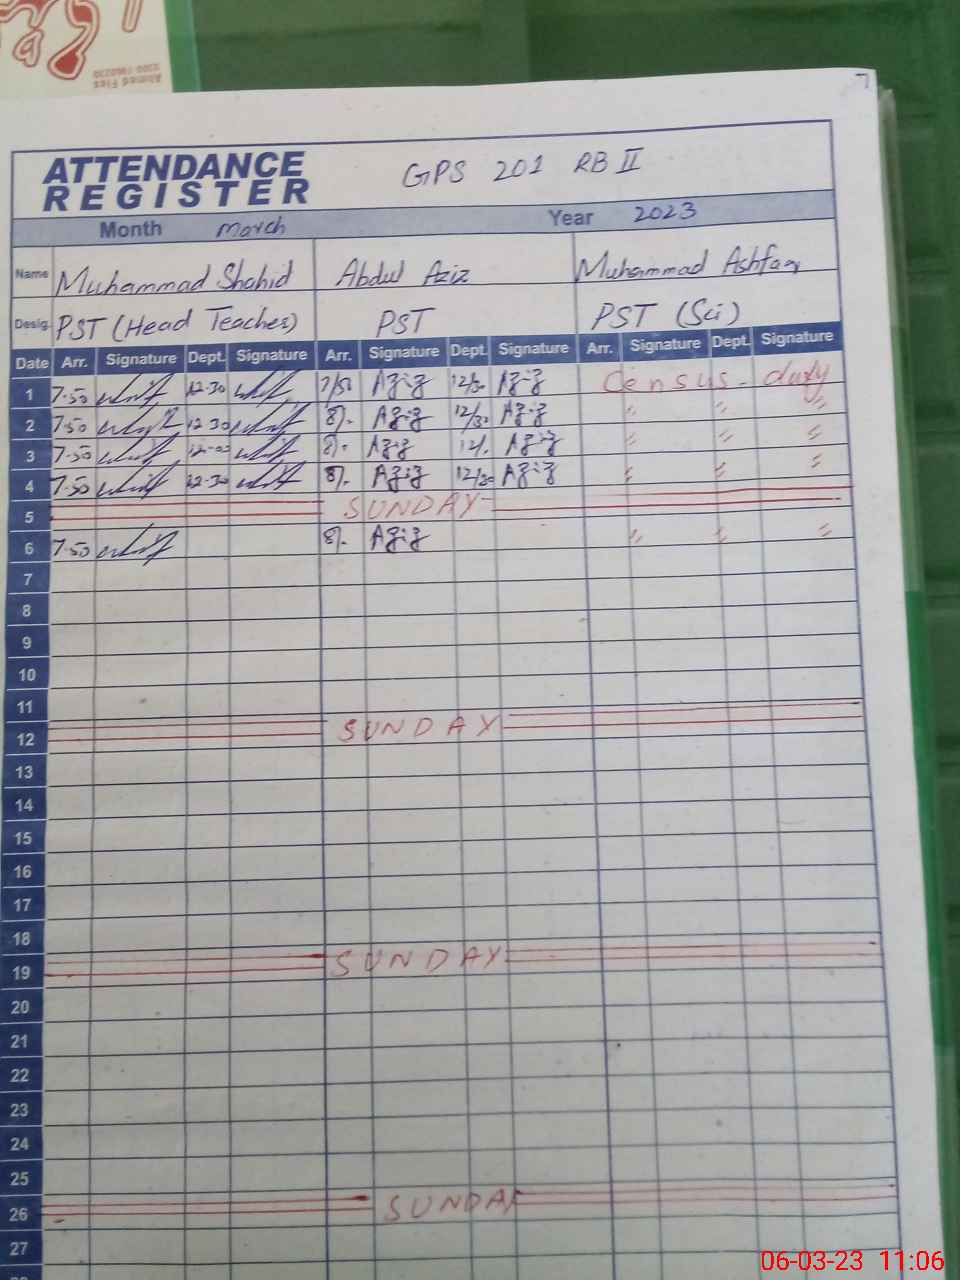 Ahmed Flex
0300-7960230
ATTENDANCE
REGISTER
GPS 201 RB II
Month March Year 2023
Name Muhammad Shahid Abdul Aziz Muhammad Ashfaq
Desig. PST (Head Teacher) PST PST (Sci)
Date Arr. Signature Dept. Signature Arr. Signature Dept. Signature Arr. Signature Dept. Signature
1 7-50 12-30 7/50 Aziz 12/30 Aziz Census duty
2 7-50 12 30 8/. Aziz 12/30 Aziz " " "
3 7-50 12-00 8/. Aziz 12/. Aziz " " "
4 7-50 12-30 8/. Aziz 12/30 Aziz " " "
5 SUNDAY
6 7-50 8/. Aziz " " "
7
8
9
10
11
12 SUNDAY
13
14
15
16
17
18
19 SUNDAY
20
21
22
23
24
25
26 SUNDAY
27
06-03-23 11:06